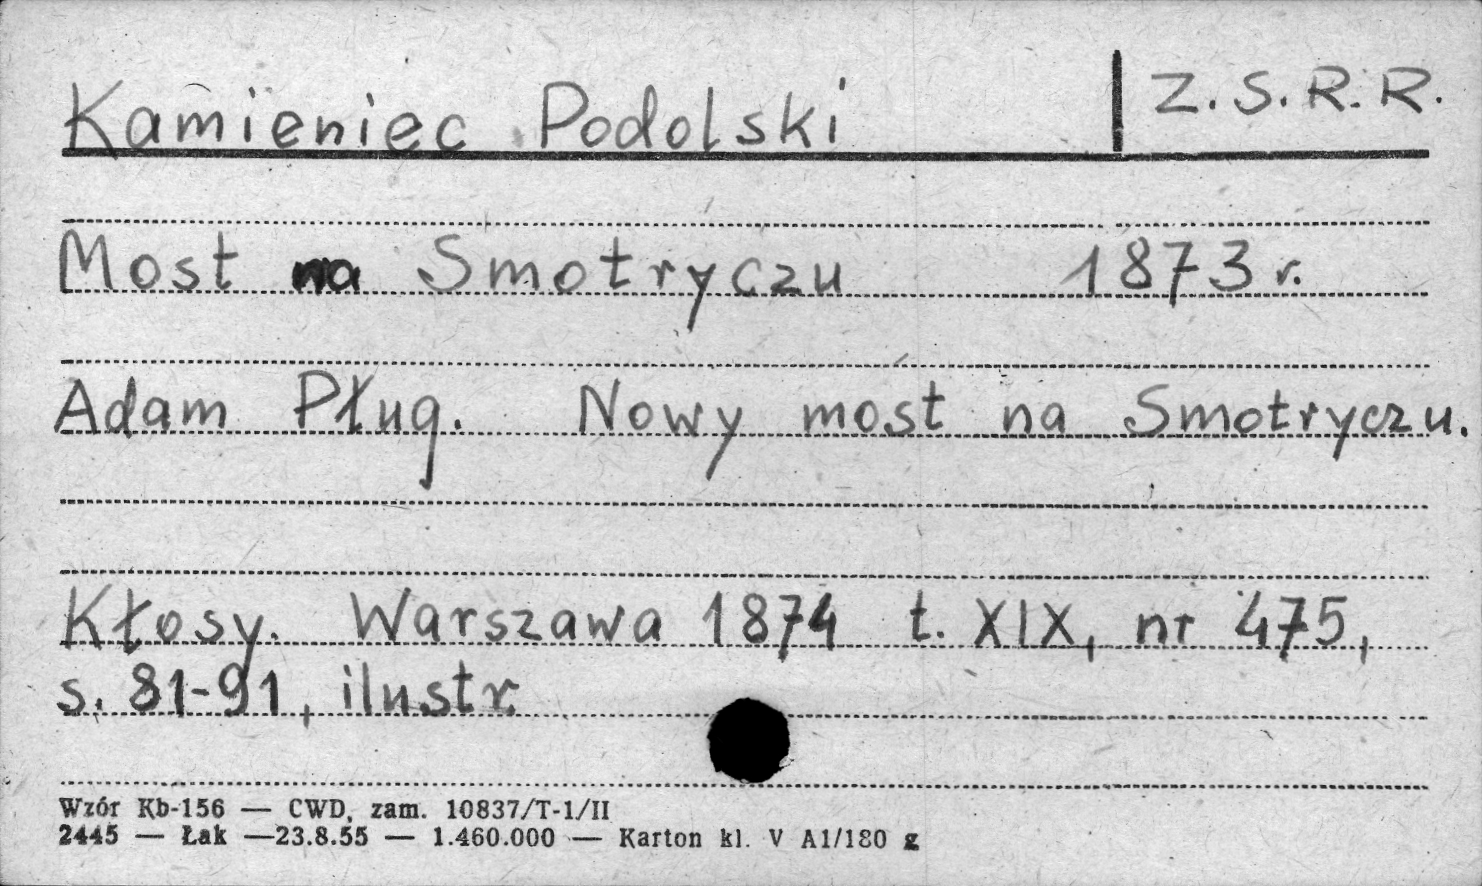 Kamieniec Podolski | Z.S.R.R.
Most na Smotryczu 1873 r.
Adam Pług. Nowy most na Smotryczu.
Kłosy. Warszawa 1874 t. XIX, nr 475,
s. 81-91, ilustr.
Wzór Kb-156 — CWD, zam. 10837/T-1/II
2445 — Łak —23.8.55 — 1.460.000 — Karton kl. V A1/180 g